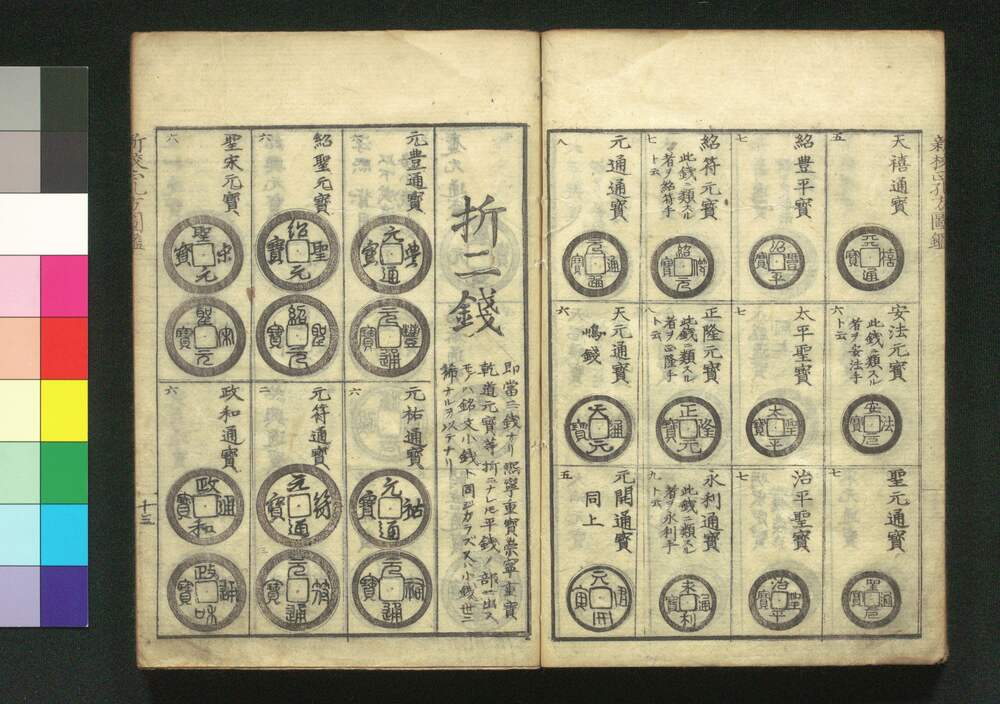 天禧通寳
五
安法元寳
此銭ニ類スル
者ヲ安法手
ト云
六
聖元通寳
七
紹豊平寳
七
太平聖寳
七
治平聖寳
七
紹符元寳
此銭ニ類スル
者ヲ紹符手
ト云
七
正隆元寳
此銭ニ類スル
者ヲ正隆手
ト云
八
永利通寳
此銭ニ類スル
者ヲ永利手
ト云
九
元通通寳
八
天元通寳
嶋銭
六
元開通寳
同上
五
折二錢
即當二銭ナリ熙寧重寳崇寧重寳
乾道元寳等折二ナレ𪜈平銭ノ部ニ出ス
モノハ銘文小銭ト同ジカラズ又ハ小銭世ニ
稀ナルヲ以テナリ
元豊通寳
六
元祐通寳
六
紹聖元寳
六
元符通寳
二
聖宋元寳
六
政和通寳
六
十三